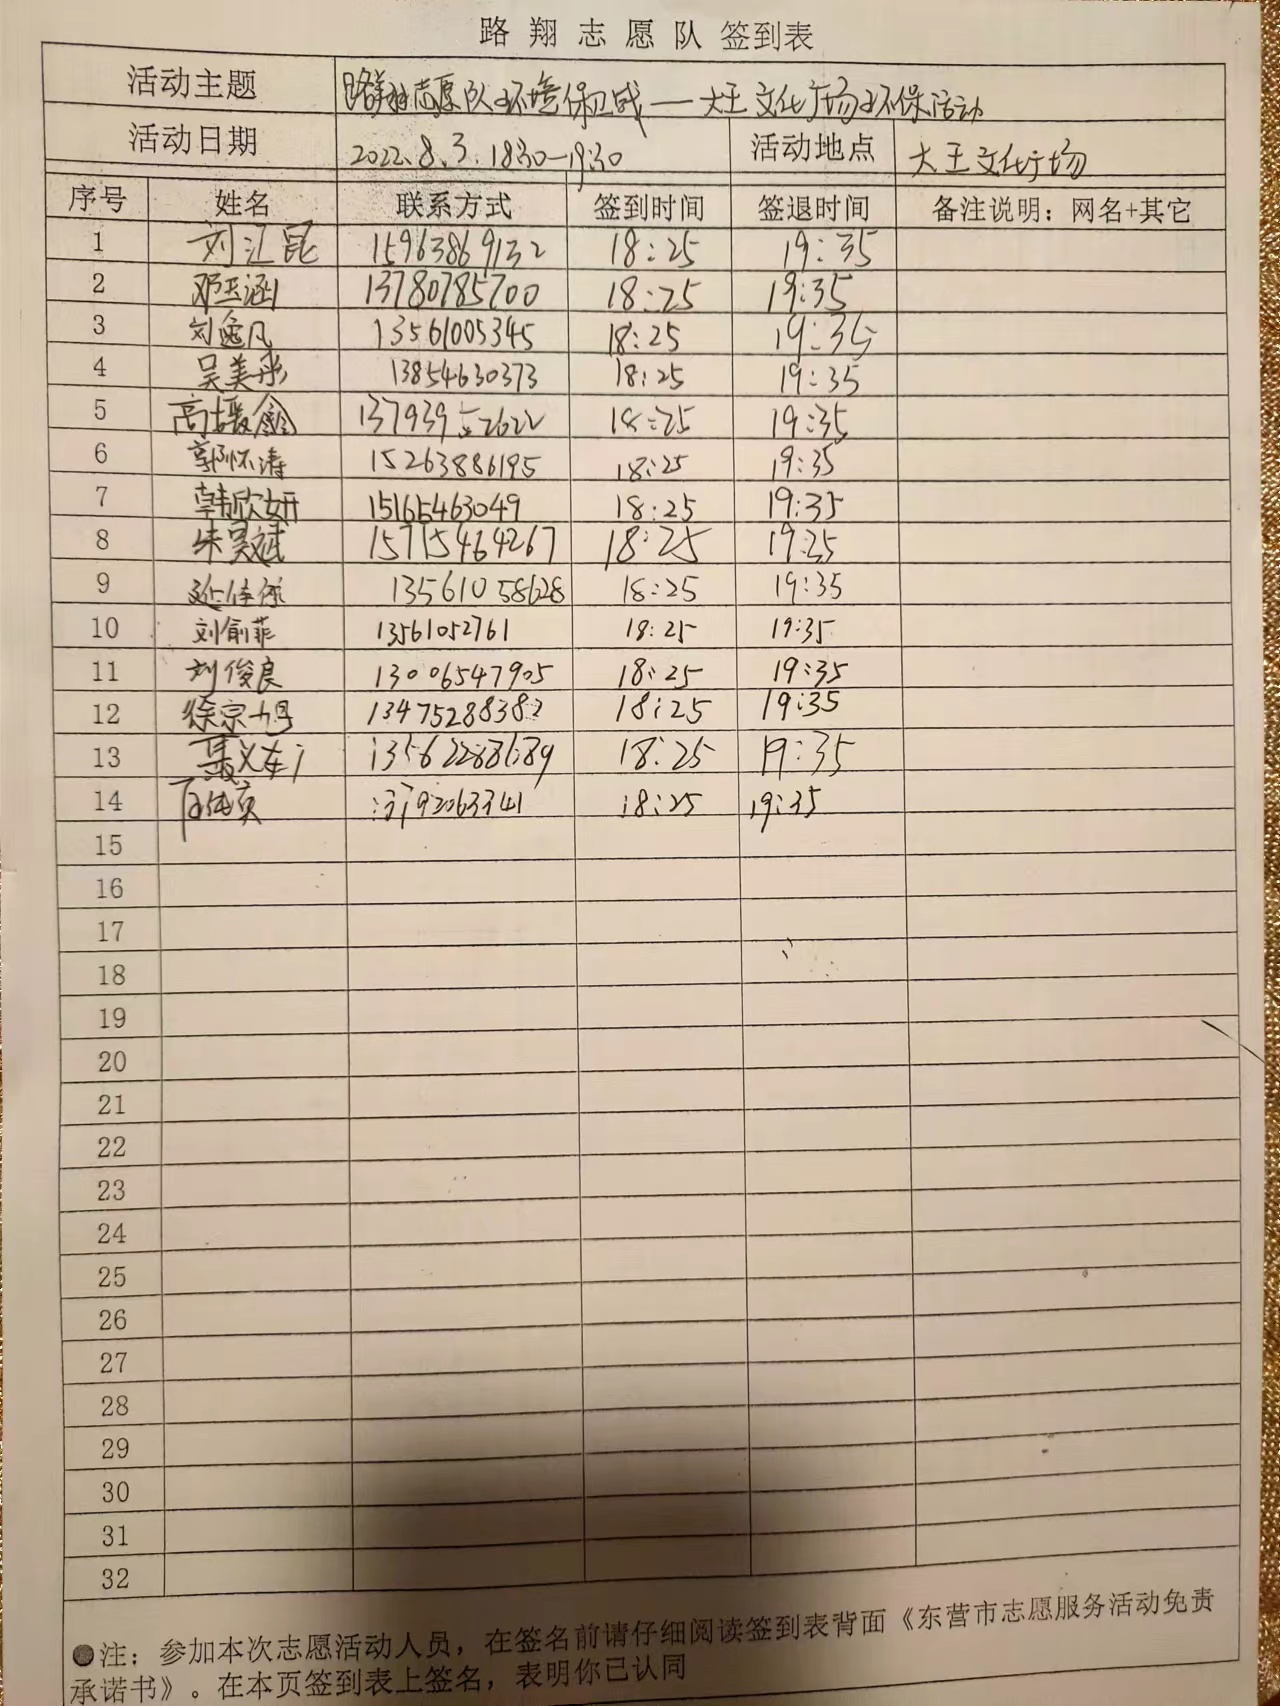 路翔志愿队签到表
活动主题 路翔志愿队环境保卫战——大王文化广场环保活动
活动日期 2022.8.3.18:30-19:30 活动地点 大王文化广场
序号 姓名 联系方式 签到时间 签退时间 备注说明：网名+其它
1 刘江昆 15963869132 18:25 19:35
2 邓玉涵 13780785700 18:25 19:35
3 刘逸凡 13561005345 18:25 19:35
4 吴美彤 13854630373 18:25 19:35
5 18:25 19:35
6 郭怀涛 15263886195 18:25 19:35
7 韩欣妍 15165463049 18:25 19:35
8 朱昊斌 15715464267 18:25 19:35
9 13561058628 18:25 19:35
10 刘俞菲 13561052761 18:25 19:35
11 刘俊良 13006547905 18:25 19:35
12 徐宗旭 13475288383 18:25 19:35
13 18:25 19:35
14 18:25 19:35
15
16
17
18
19
20
21
22
23
24
25
26
27
28
29
30
31
32
●注：参加本次志愿活动人员，在签名前请仔细阅读签到表背面《东营市志愿服务活动免责
承诺书》。在本页签到表上签名，表明你已认同